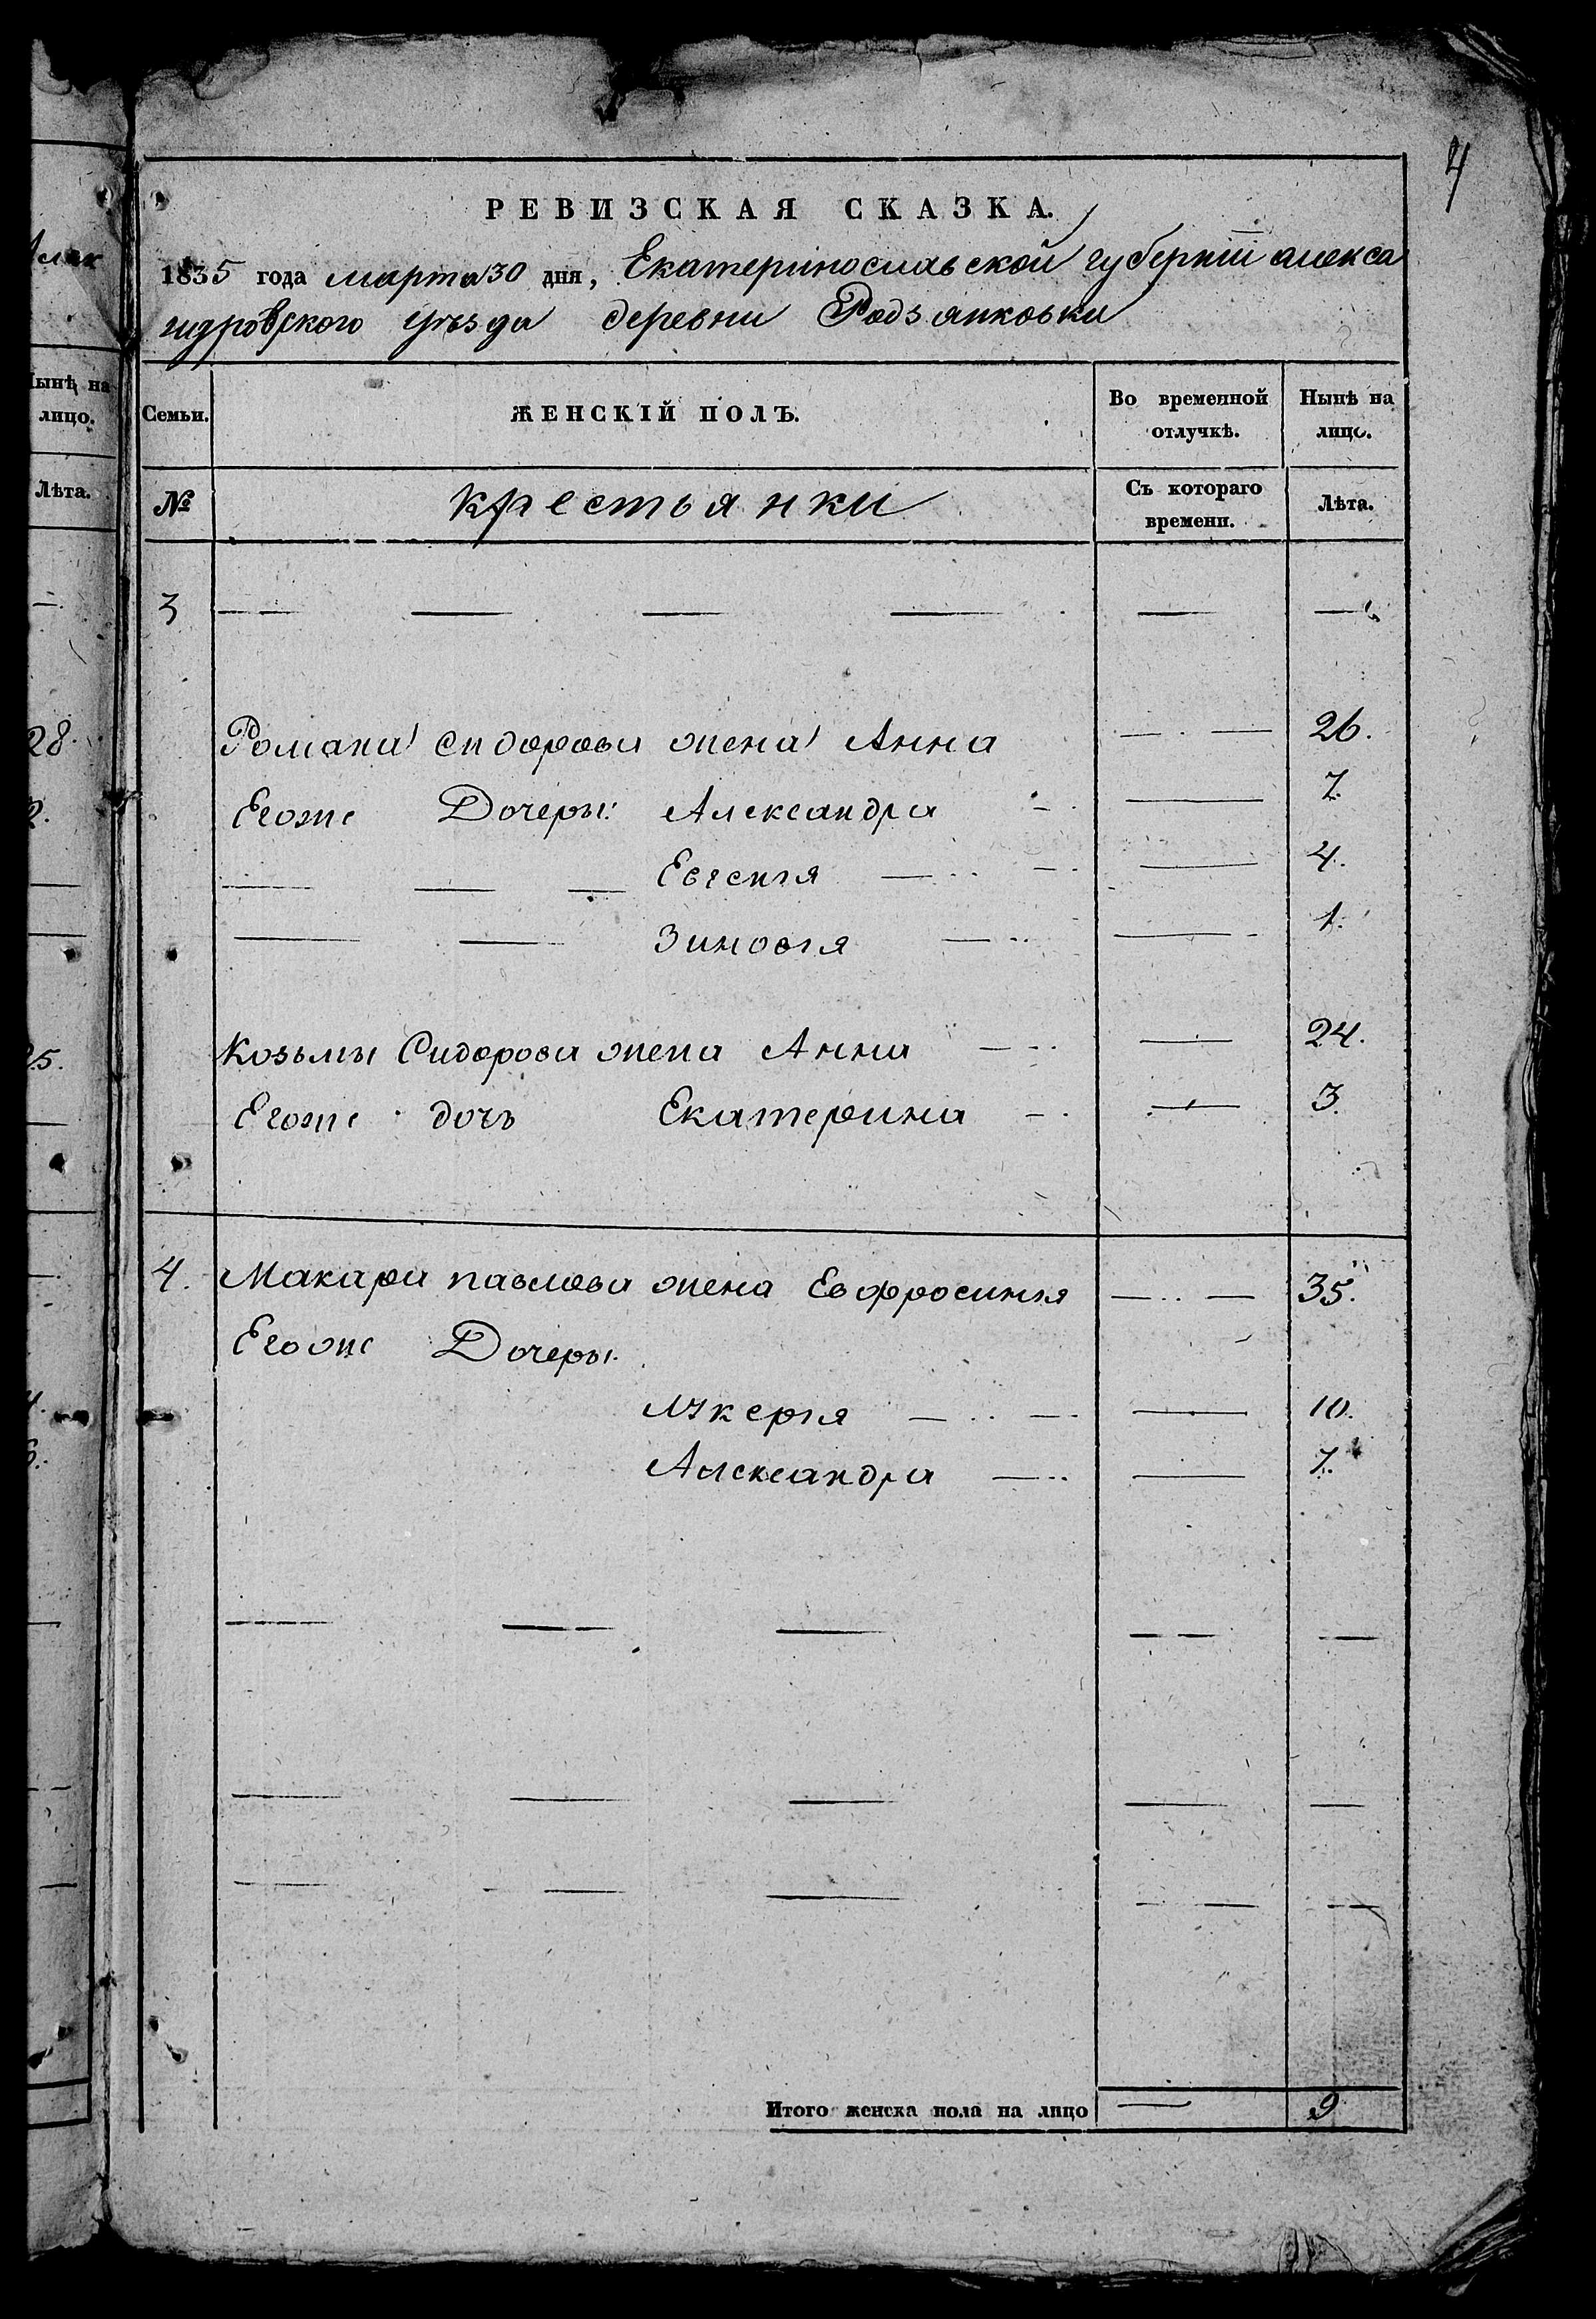 4
РЕВИЗСКАЯ СКАЗКА.
1835 года марта 30 дня, Екатеринославской губерніи алекса
ндровского уѣзда деревни Родзянковки
Семьи. ЖЕНСКІЙ ПОЛЪ. Во временной отлучкѣ. Нынѣ на лицо.
№ крестьянки Съ котораго времени. Лѣта.
3
Романа Сидорова жена Анна 26.
Егоже Дочеры: Александра 7.
Евгения 4.
Зиновия 1.
Козьмы Сидорова жена Анна 24.
Егоже дочь Екатерина 3.
4. Макара павлова жена Евфросиния 35.
Егоже Дочеры.
Лукерия 10.
Александра 7.
Итого женска пола на лицо 9
ынѣ на
лицо.
Лѣта.
28.